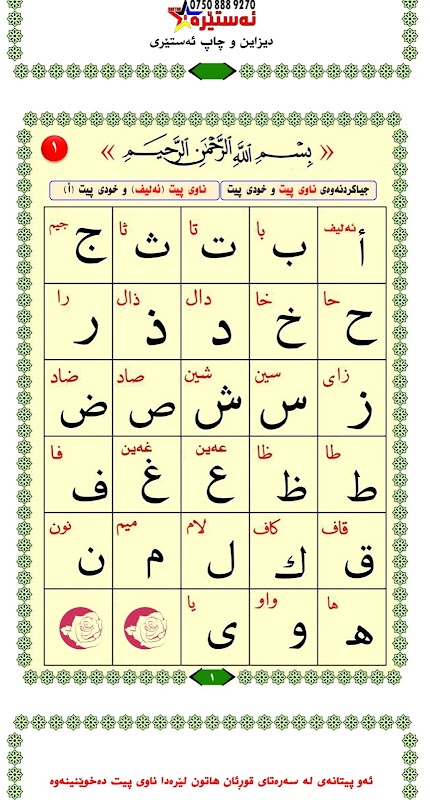 0750 888 9270
ئەستێرە
دیزاین و چاپ ئەستێری
١
« بِسْمِ اللَّهِ الرَّحْمَٰنِ الرَّحِيمِ »
جیاکردنەوەی ناوی پیت و خودی پیت
ناوی پیت (ئەلیف) و خودی پیت (أ)
ئەلیف با تا ثا جیم
أ ب ت ث ج
حا خا دال ذال را
ح خ د ذ ر
زای سین شین صاد ضاد
ز س ش ص ض
طا ظا عەین غەین فا
ط ظ ع غ ف
قاف کاف لام میم نون
ق ك ل م ن
ها واو یا
ھ و ی
١
ئەو پیتانەی لە سەرەتای قورئان هاتون لێرەدا ناوی پیت دەخوێنینەوە